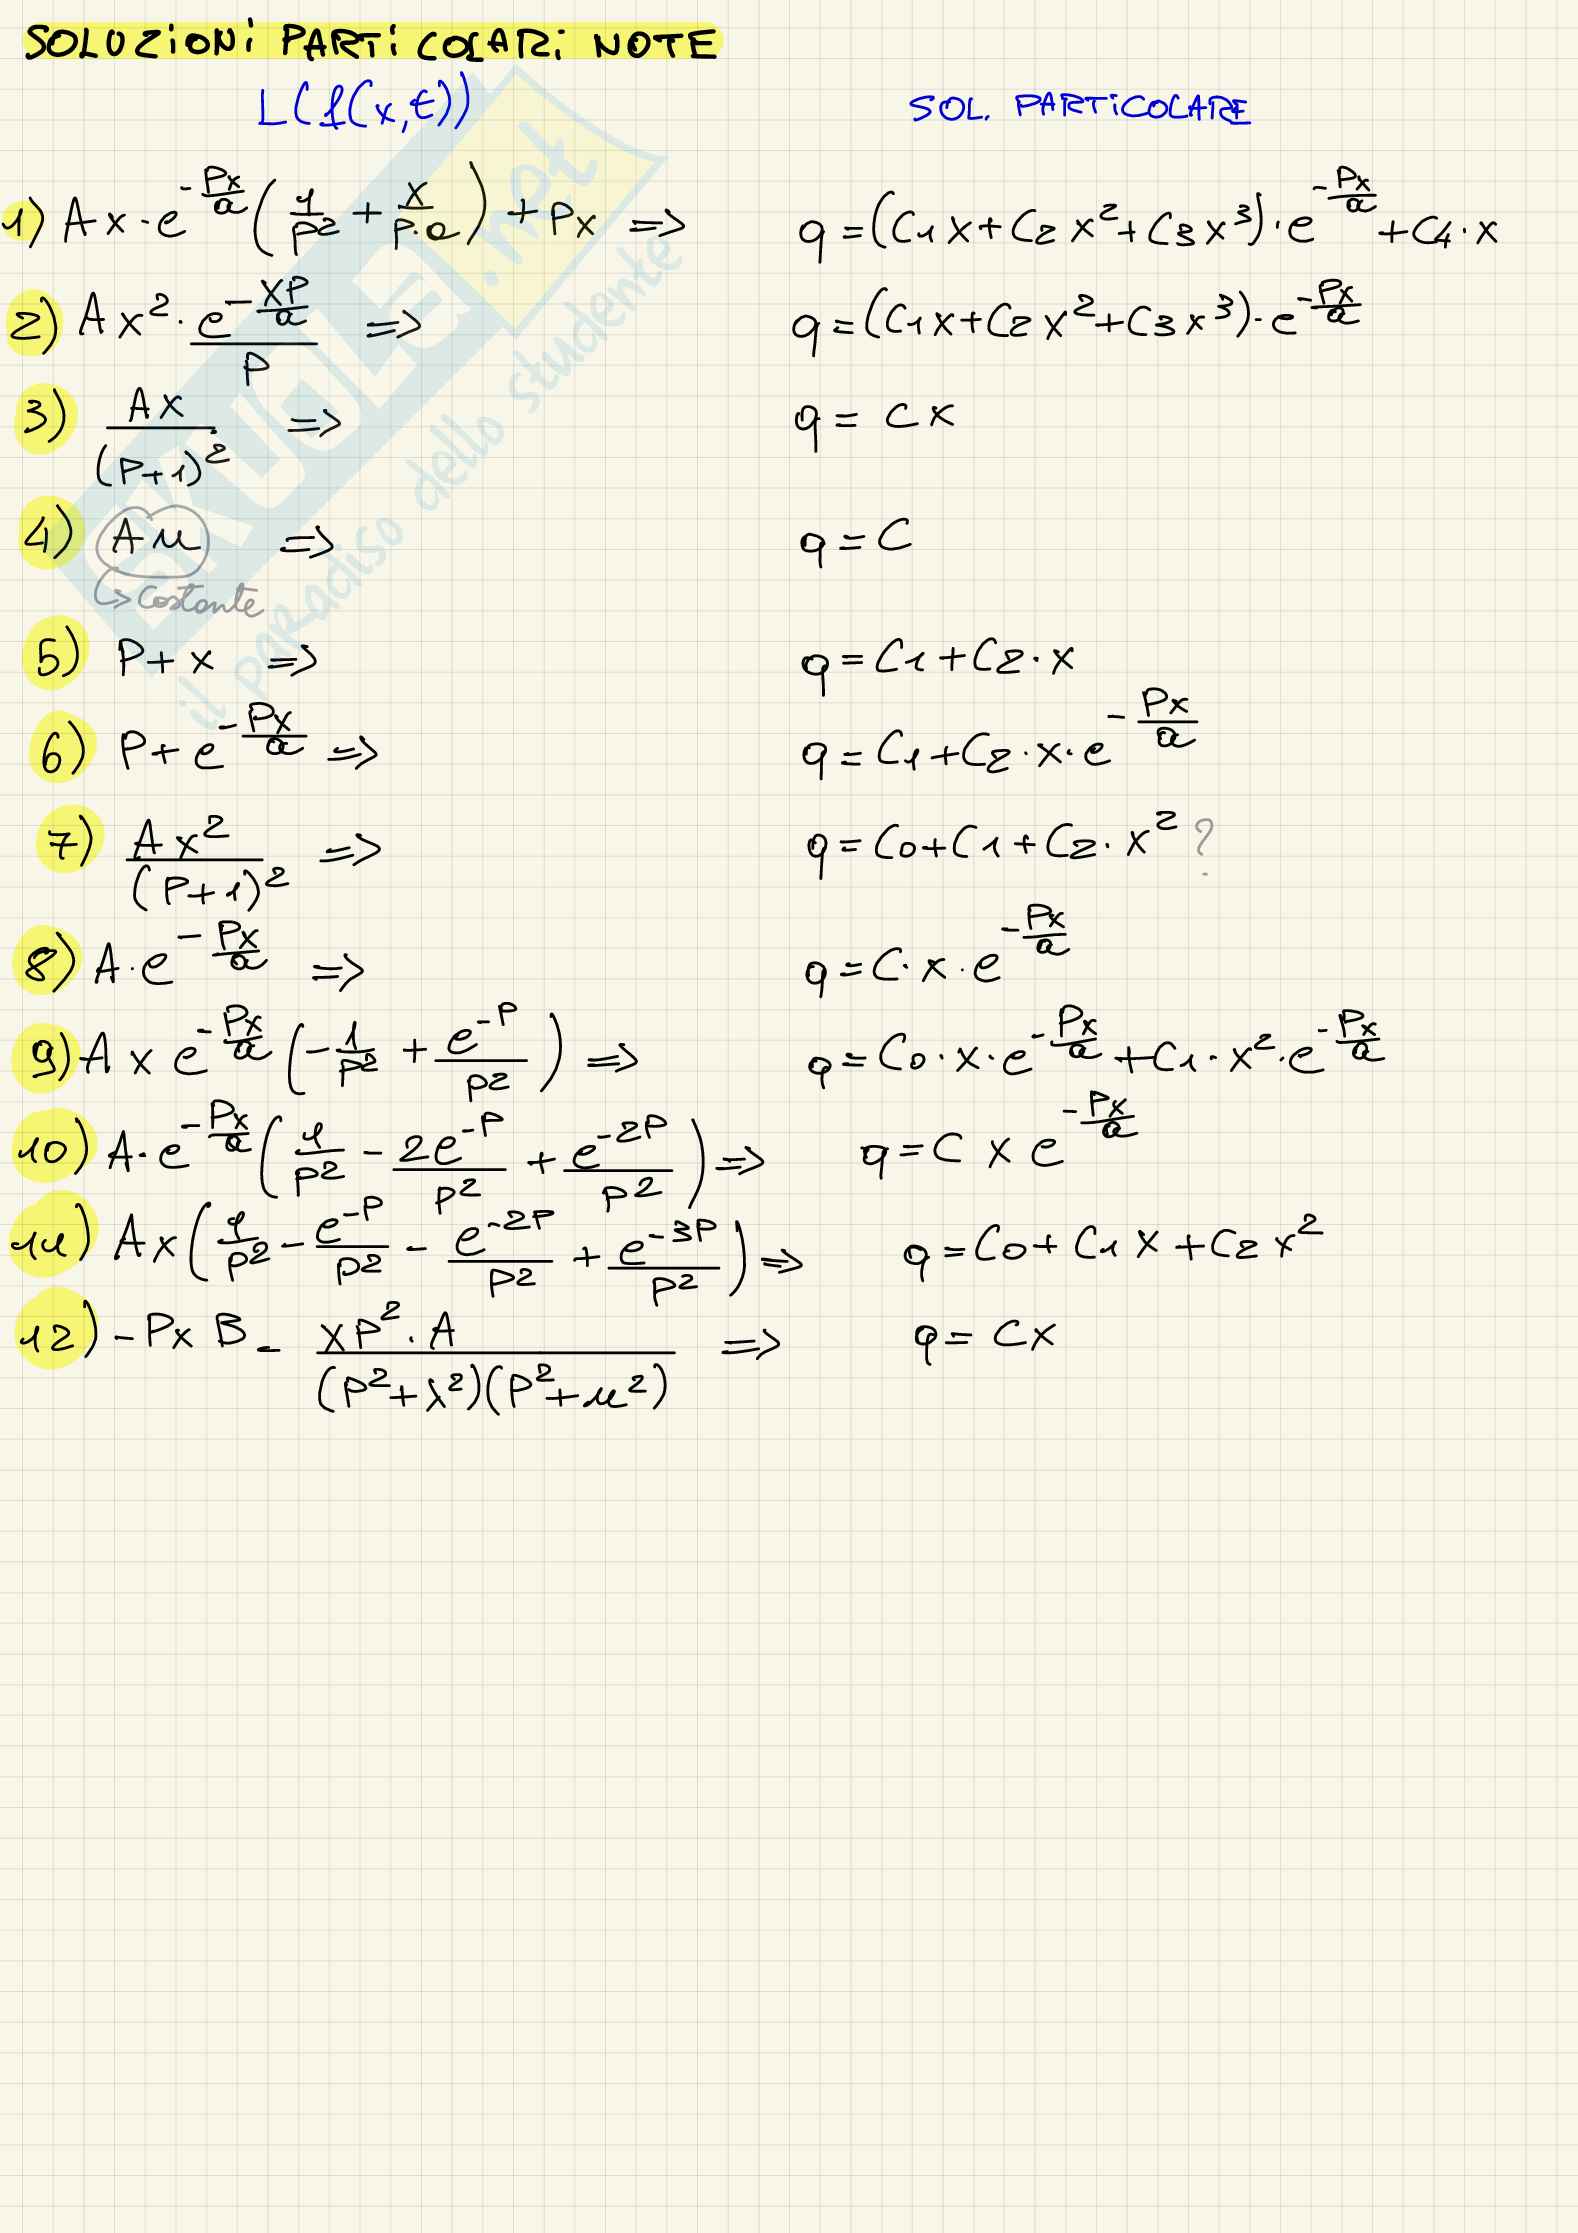 SOLUZIONI PARTICOLARI NOTE
L(f(x,t)) SOL. PARTICOLARE
1) Ax·e^{-Px/a}(1/P² + x/(P·a)) + Px => q = (C1x+C2x²+C3x³)·e^{-Px/a} + C4·x
2) Ax²·e^{-xP/a}/P => q = (C1x+C2x²+C3x³)·e^{-Px/a}
3) Ax/(P+1)² => q = Cx
4) Aμ => q = C
↳ Costante
5) P+x => q = C1+C2·x
6) P+e^{-Px/a} => q = C1+C2·x·e^{-Px/a}
7) Ax²/(P+1)² => q = C0+C1+C2·x² ?
8) A·e^{-Px/a} => q = C·x·e^{-Px/a}
9) Axe^{-Px/a}(-1/P² + e^{-P}/P²) => q = C0·x·e^{-Px/a} + C1·x²·e^{-Px/a}
10) A·e^{-Px/a}(1/P² - 2e^{-P}/P² + e^{-2P}/P²) => q = Cxe^{-Px/a}
11) Ax(1/P² - e^{-P}/P² - e^{-2P}/P² + e^{-3P}/P²) => q = C0+C1x+C2x²
12) -PxB - xP²·A/((P²+λ²)(P²+μ²)) => q = Cx
SKUOLA.net
il paradiso dello studente